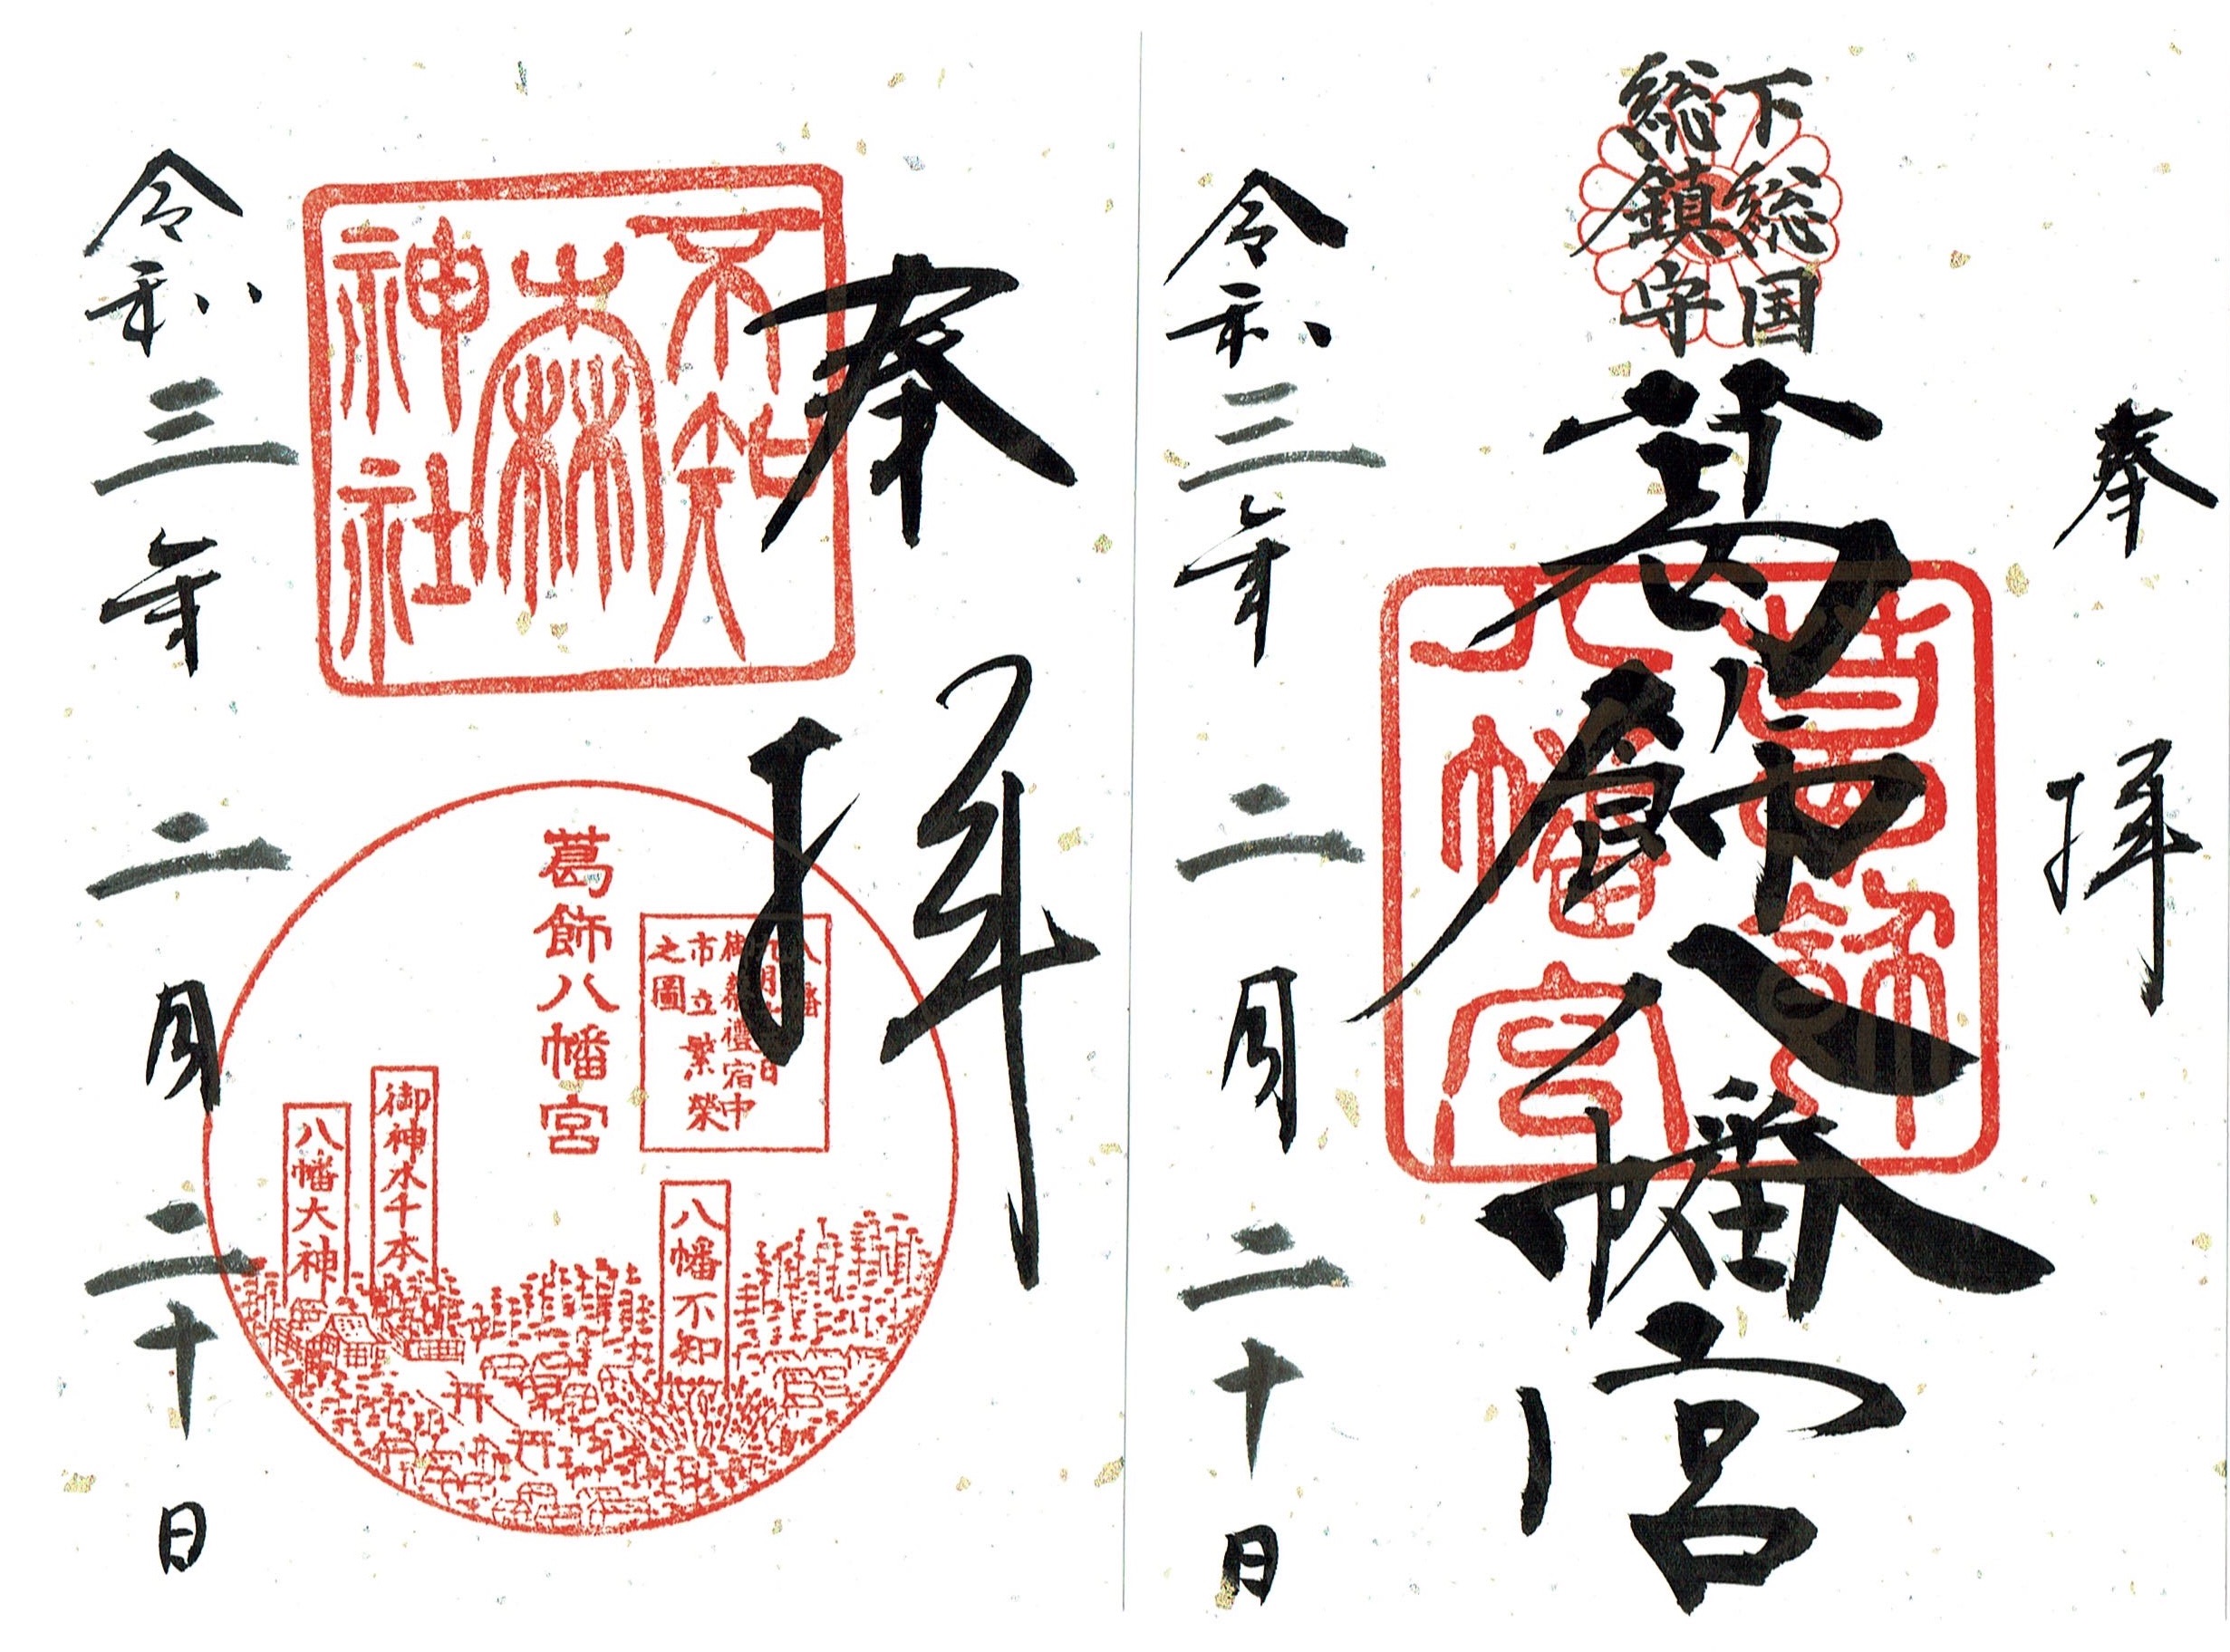 奉拝
下総国
総鎮守
葛飾八幡宮
葛飾
八幡宮
令和三年二月二十日
奉拝
不知
森
神社
葛飾八幡宮
八幡
御祭禮宿中
市立繁榮
之圖
八幡不知
御神木千本
八幡大神
令和三年二月二十日